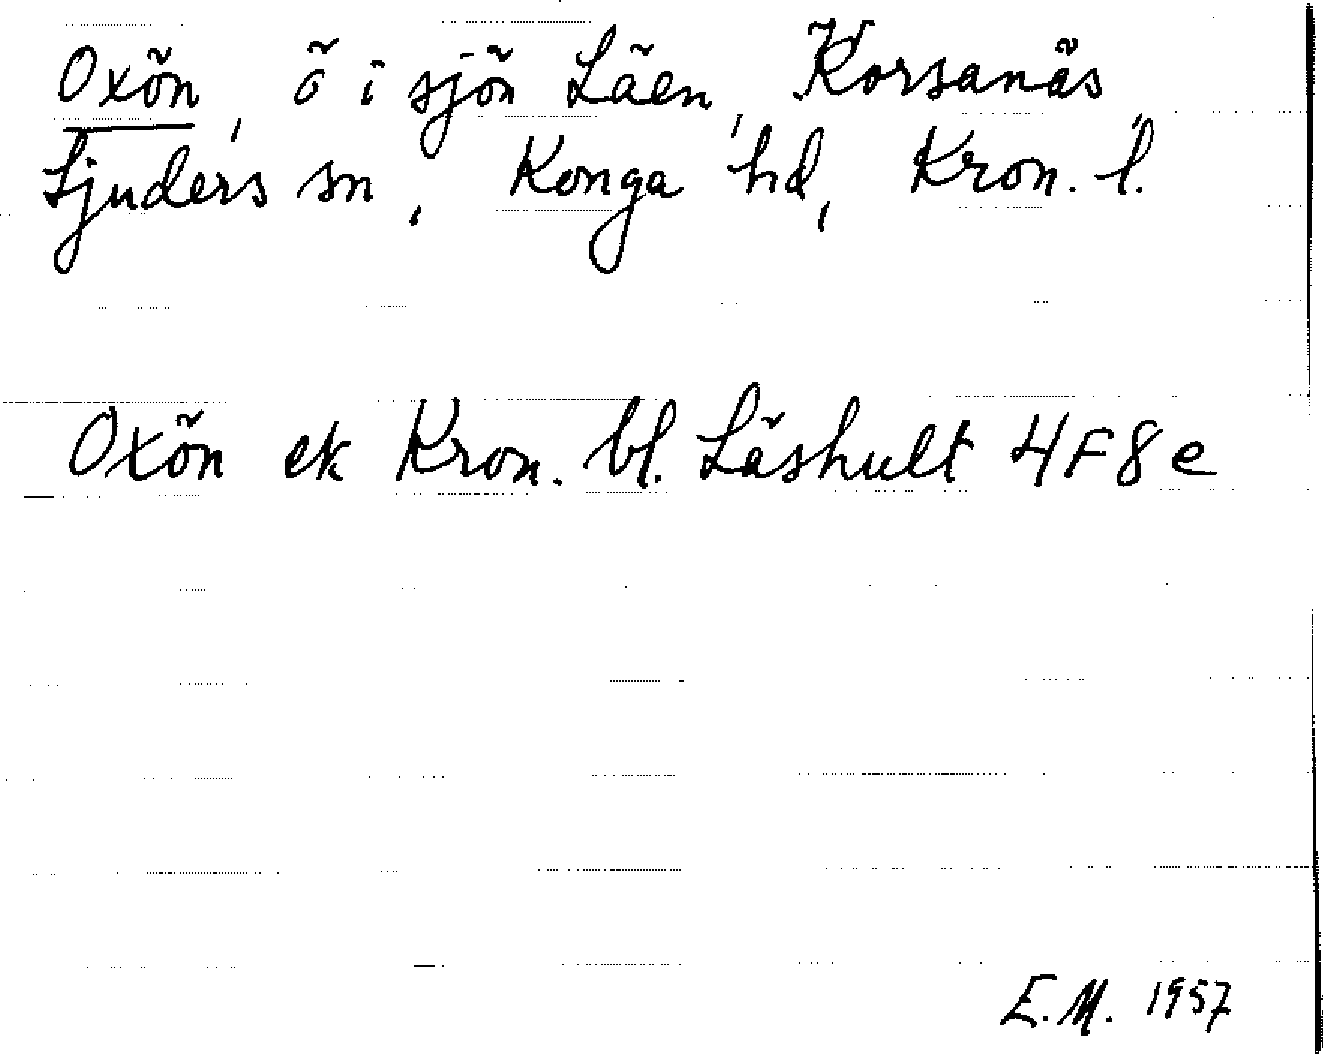 Oxön, ö i sjön Läen, Korsanäs,
Ljuders sn, Konga hd, Kron. l.
Oxön ek Kron. bl. Läshult 4F8e
E.M. 1957